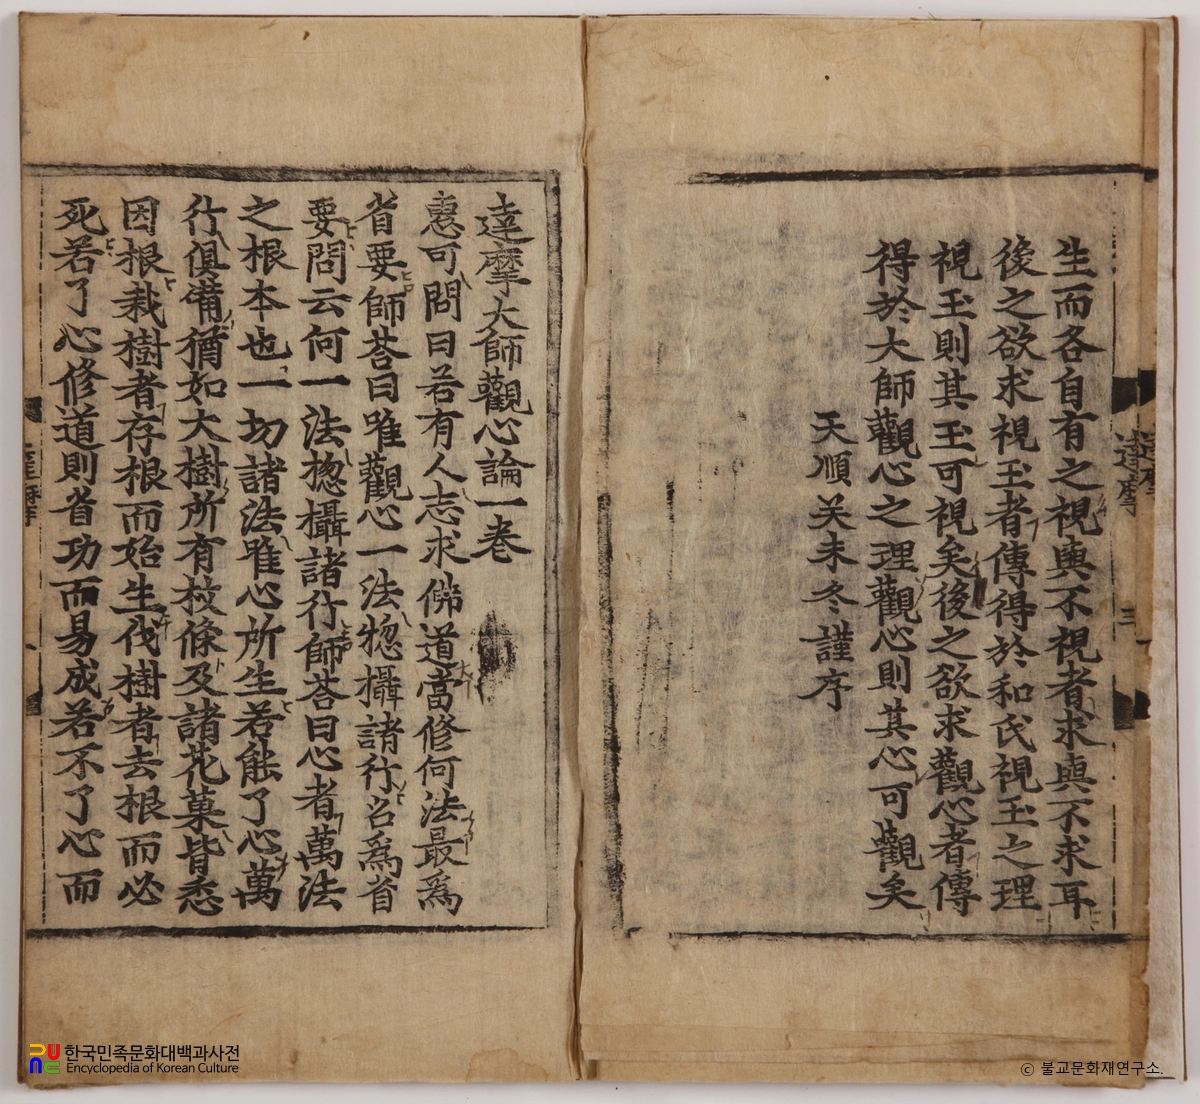 生而各自有之視與不視者求與不求耳
後之欲求視玉者傳得於和氏視玉之理
視玉則其玉可視矣後之欲求觀心者傳
得於大師觀心之理觀心則其心可觀矣
天順癸未冬謹序
達摩
三
達摩大師觀心論一卷
惠可問曰若有人志求佛道當修何法最爲
省要師荅曰唯觀心一法揔攝諸行名爲省
要問云何一法揔攝諸行師荅曰心者萬法
之根本也一切諸法唯心所生若能了心萬
行俱備猶如大樹所有枝條及諸花菓皆悉
因根栽樹者存根而始生伐樹者去根而必
死若了心修道則省功而易成若不了心而
한국민족문화대백과사전
Encyclopedia of Korean Culture
ⓒ 불교문화재연구소.